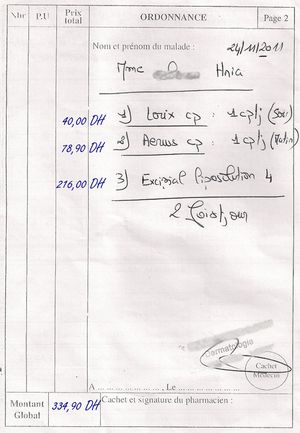 Nbr P.U Prix total ORDONNANCE Page 2
Nom et prénom du malade : 24/11/2011
Mme Hnia
40,00 DH 1) Lorix cp : 1 cp/j (Soir)
78,90 DH 2) Aerius cp : 1 cp/j (Matin)
216,00 DH 3) Excipial Liposolution 4
2 fois/jour
Dermatologie
Cachet
Médecin
A ........................ , Le ........................
Montant Global 334,90 DH Cachet et signature du pharmacien :